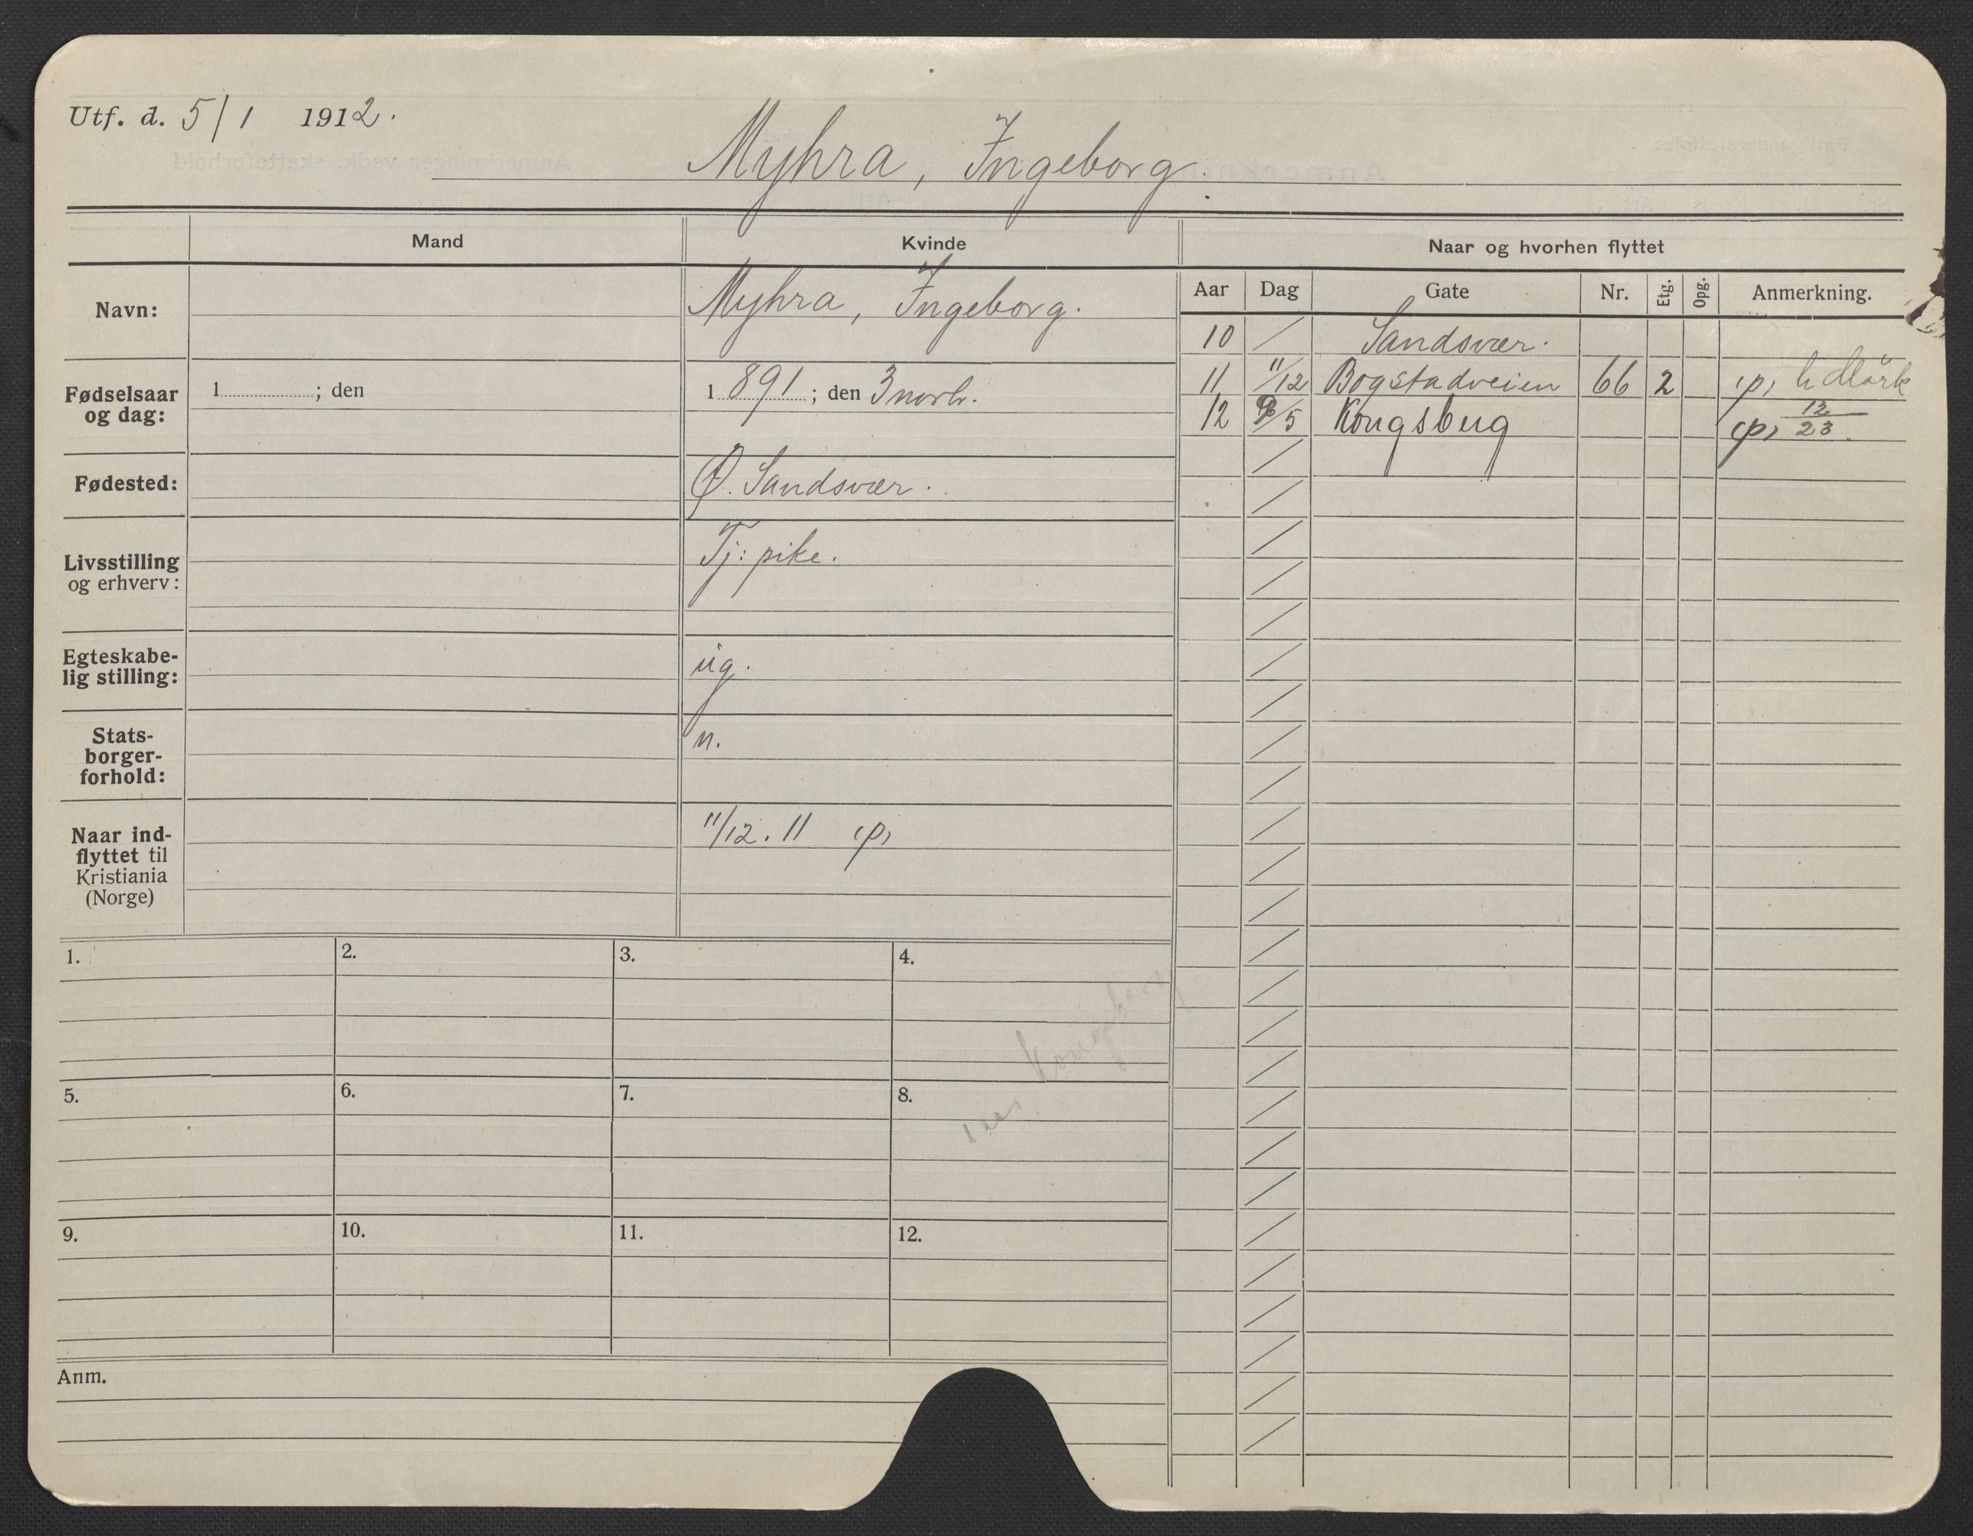 Utf. d. 5/1 1912.
Myhra, Ingeborg.
Mand
Kvinde
Naar og hvorhen flyttet
Navn:
Myhra, Ingeborg.
Fødselsaar og dag:
1 ; den
1 891 ; den 3 novb.
Fødested:
Ø. Sandsvær.
Livsstilling og erhverv:
Tj: pike.
Egteskabe-
lig stilling:
ug.
Stats-
borger-
forhold:
n.
Naar ind-
flyttet til
Kristiania
(Norge)
11/12. 11 (p)
Aar Dag Gate Nr. Etg. Opg. Anmerkning.
10 / Sandsvær.
11 11/12 Bogstadveien 66 2 (p) h Mörk
12 /5 Kongsberg (p) 12/23.
1.
2.
3.
4.
Kongsberg
5.
6.
7.
8.
9.
10.
11.
12.
Anm.